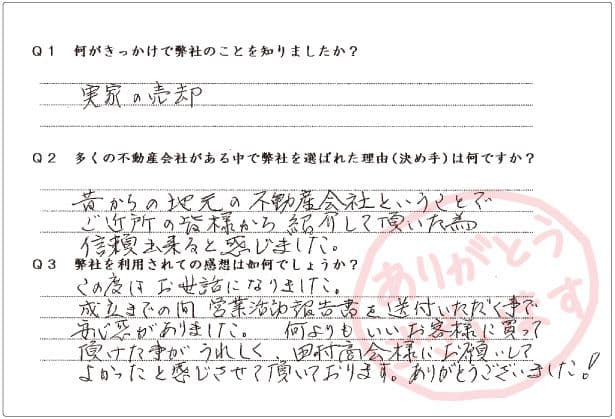 Q1 何がきっかけで弊社のことを知りましたか?
実家の売却
Q2 多くの不動産会社がある中で弊社を選ばれた理由(決め手)は何ですか?
昔からの地元の不動産会社ということで
ご近所の皆様から紹介して頂いた為
信頼出来ると感じました。
Q3 弊社を利用されての感想は如何でしょうか?
この度はお世話になりました。
成立までの間 営業活動報告書を送付いただく事で
安心感がありました。 何よりもいいお客様に買って
頂けた事がうれしく、田村商会様にお願いして
よかったと感じさせて頂いております。ありがとうございました!
ありがとう
ございます